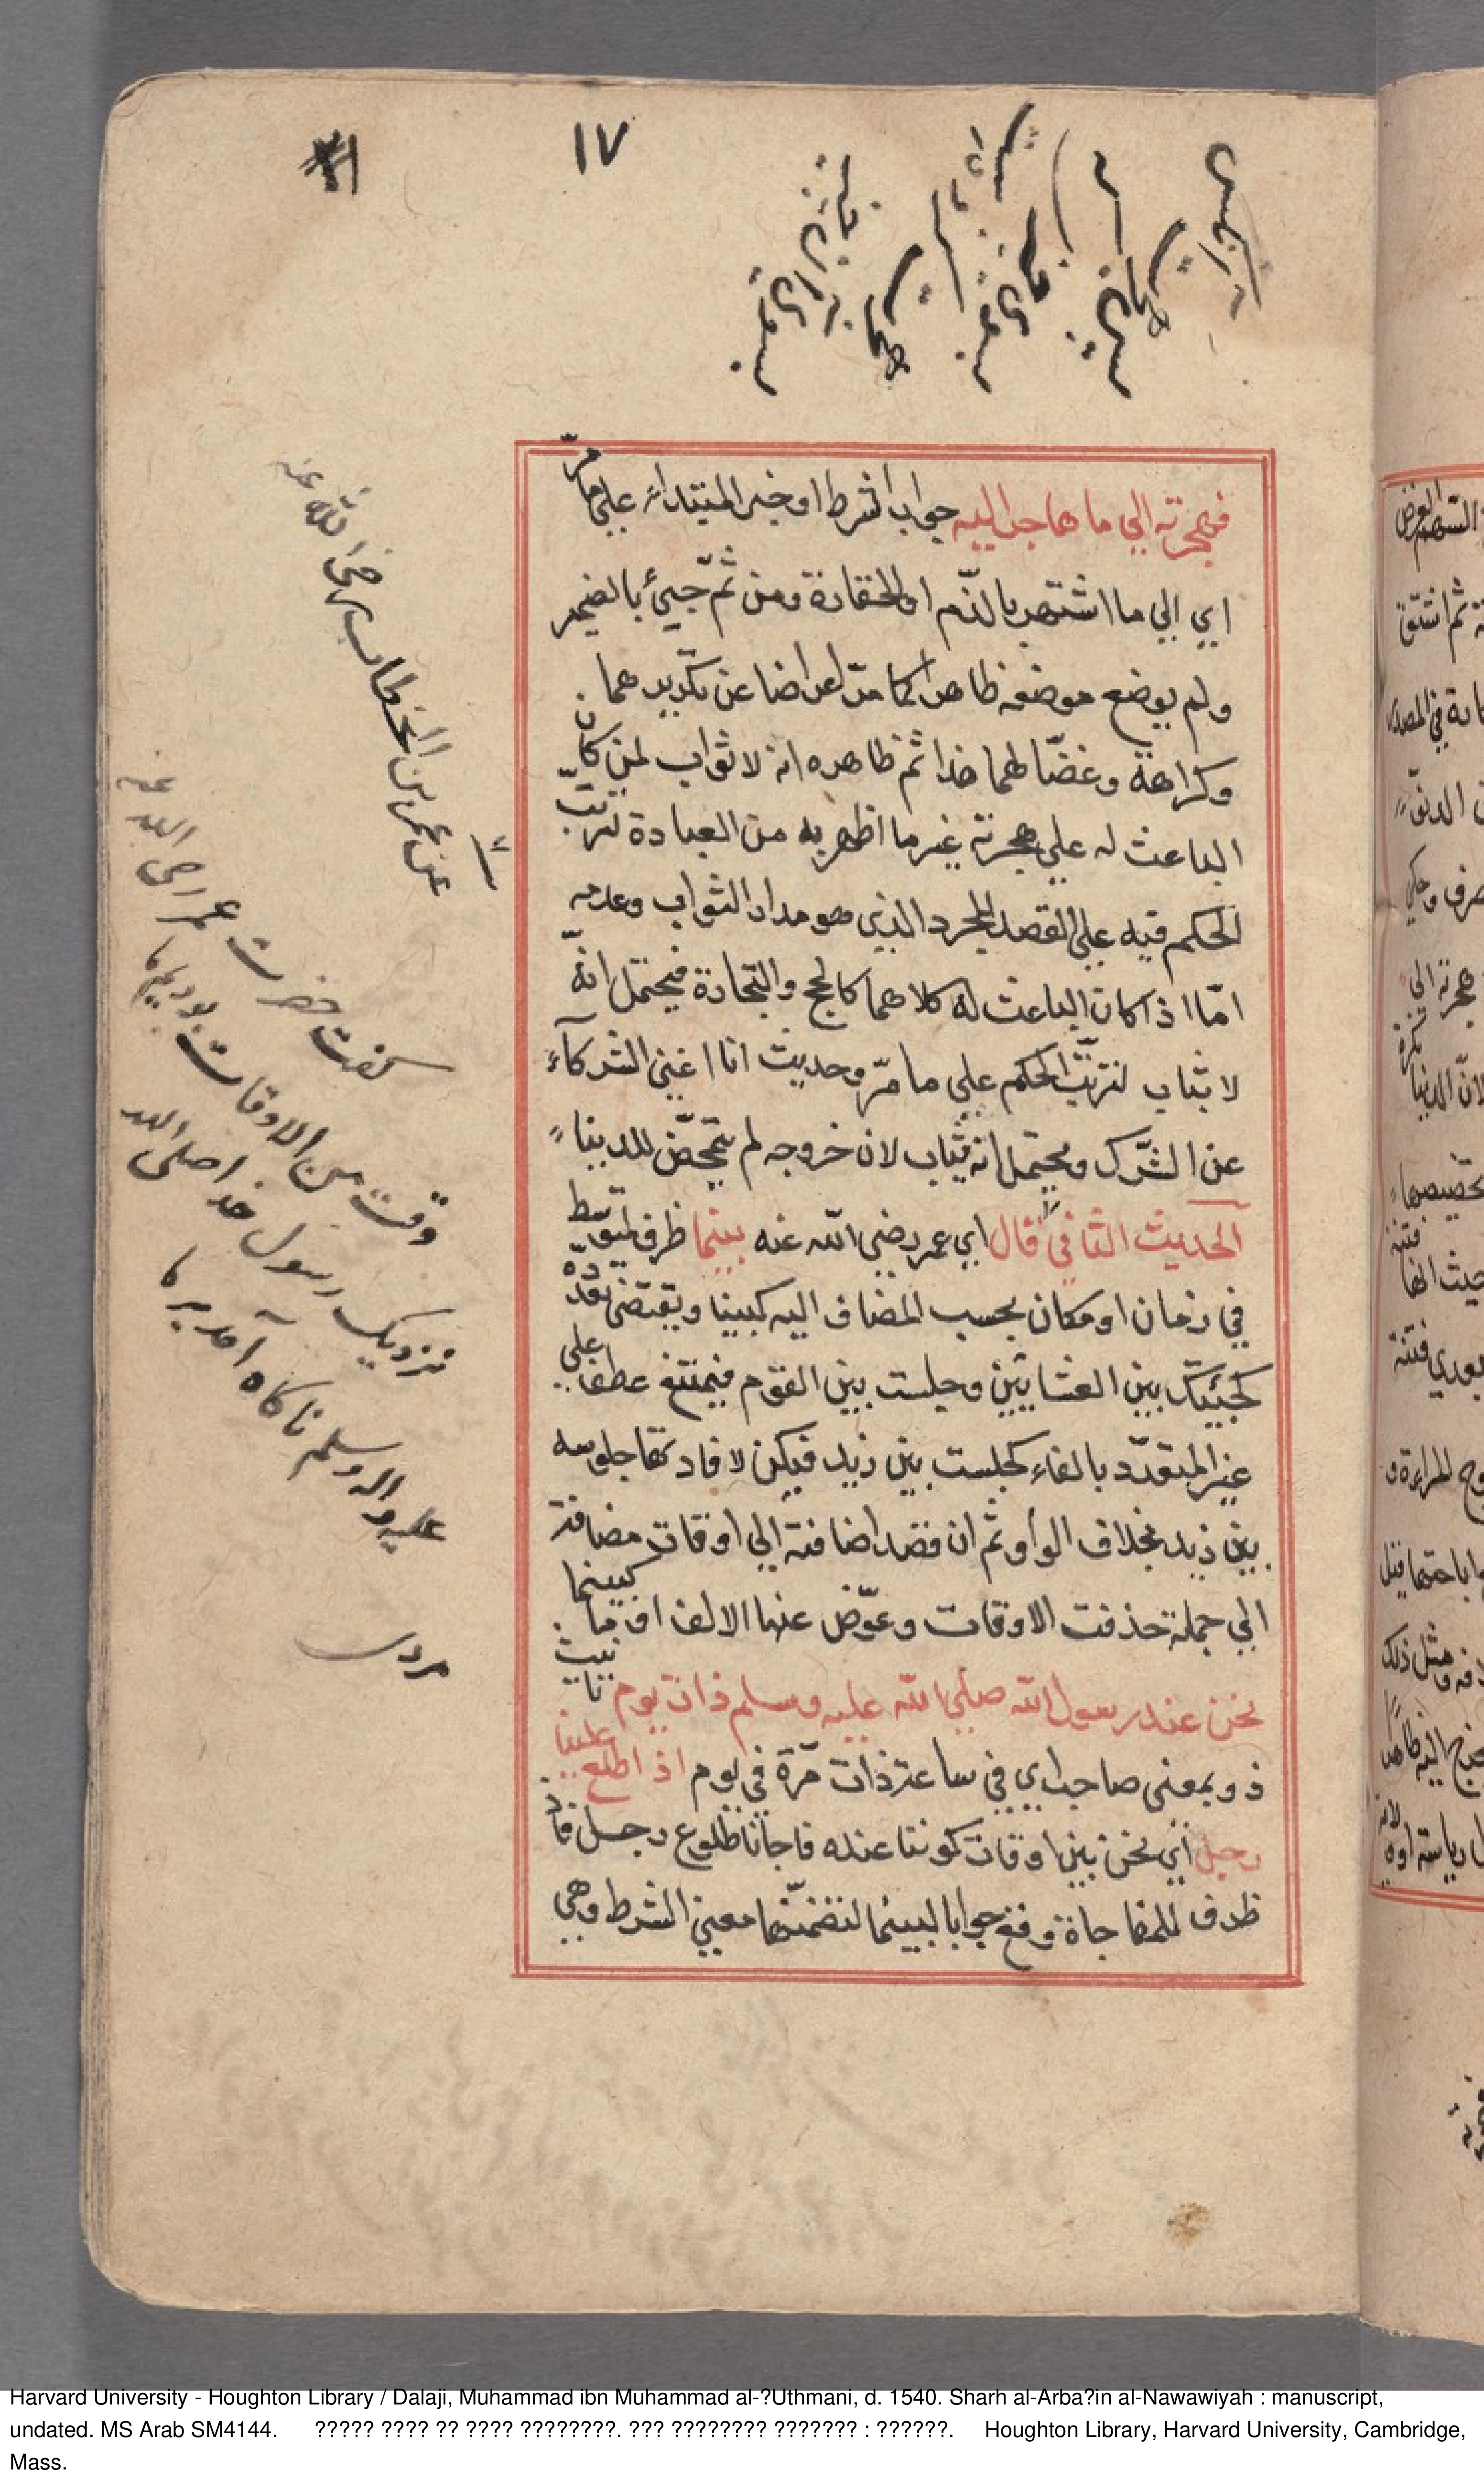 ١٧
فهجرته الي ما هاجر اليه جواب الشرط او خبر المبتداء علي ما مرّ
اي الي ما اشتهر بالذم او الحقارة ومن ثمّ جيئ بالضمير
ولم يوضع موضعه ظاهر كما مرّ اعراضا عن تكريرهما
وكراهة وغضّا لهما هذا ثم ظاهره انه لا ثواب لمن كان
الباعث له علي هجرته غير ما اظهر به من العبادة لترتب
الحكم فيه علي القصد المجرد الذي هو مدار الثواب وعدمه
امّا اذا كان الباعث له كلاهما كالحج والتجارة فيحتمل انّه
لا يثاب لترتّب الحكم علي ما مرّ وحديث انا اغني الشركآء
عن الشّرك ويحتمل انه يثاب لان خروجه لم يتمحّض للدينا
الحديث الثاني قال اي عمر رضي الله عنه بينما ظرف لتوسّط
في زمان او مكان بحسب المضاف اليه كبينا ويقتضي تعدّده
كجئتك بين العشائين وجلست بين القوم فيمتنع عطف علي
غير المتعدّد بالفاء كجلست بين زيد فبكر لافادتها جلوسه
بين زيد بخلاف الواو ثم ان قصد اضافته الي اوقات مضافة
الي جملة حذفت الاوقات وعوّض عنها الالف او ما كبينما
نحن عند رسول الله صلي الله عليه وسلم ذات يوم تانيث
ذو بمعني صاحب اي في ساعة ذات مرّة في يوم اذ اطلع علينا
رجل اي نحن بين اوقات كوننا عنده فاجانا طلوع رجل فاذ
ظرف للمفاجاة وقع جوابا لبينما لتضمّنها معني الشرط وهي
عن عمر بن الخطاب رضي الله عنه
كفت حضرت عمر رضی الله عنه
وقت من الاوقات بوديم ما
نزديك رسول خدا صلی الله
عليه واله وسلم ناكاه آمد بر ما
مردی
Harvard University - Houghton Library / Dalaji, Muhammad ibn Muhammad al-?Uthmani, d. 1540. Sharh al-Arba?in al-Nawawiyah : manuscript,
undated. MS Arab SM4144. ????? ???? ?? ???? ????????. ??? ???????? ??????? : ??????. Houghton Library, Harvard University, Cambridge,
Mass.